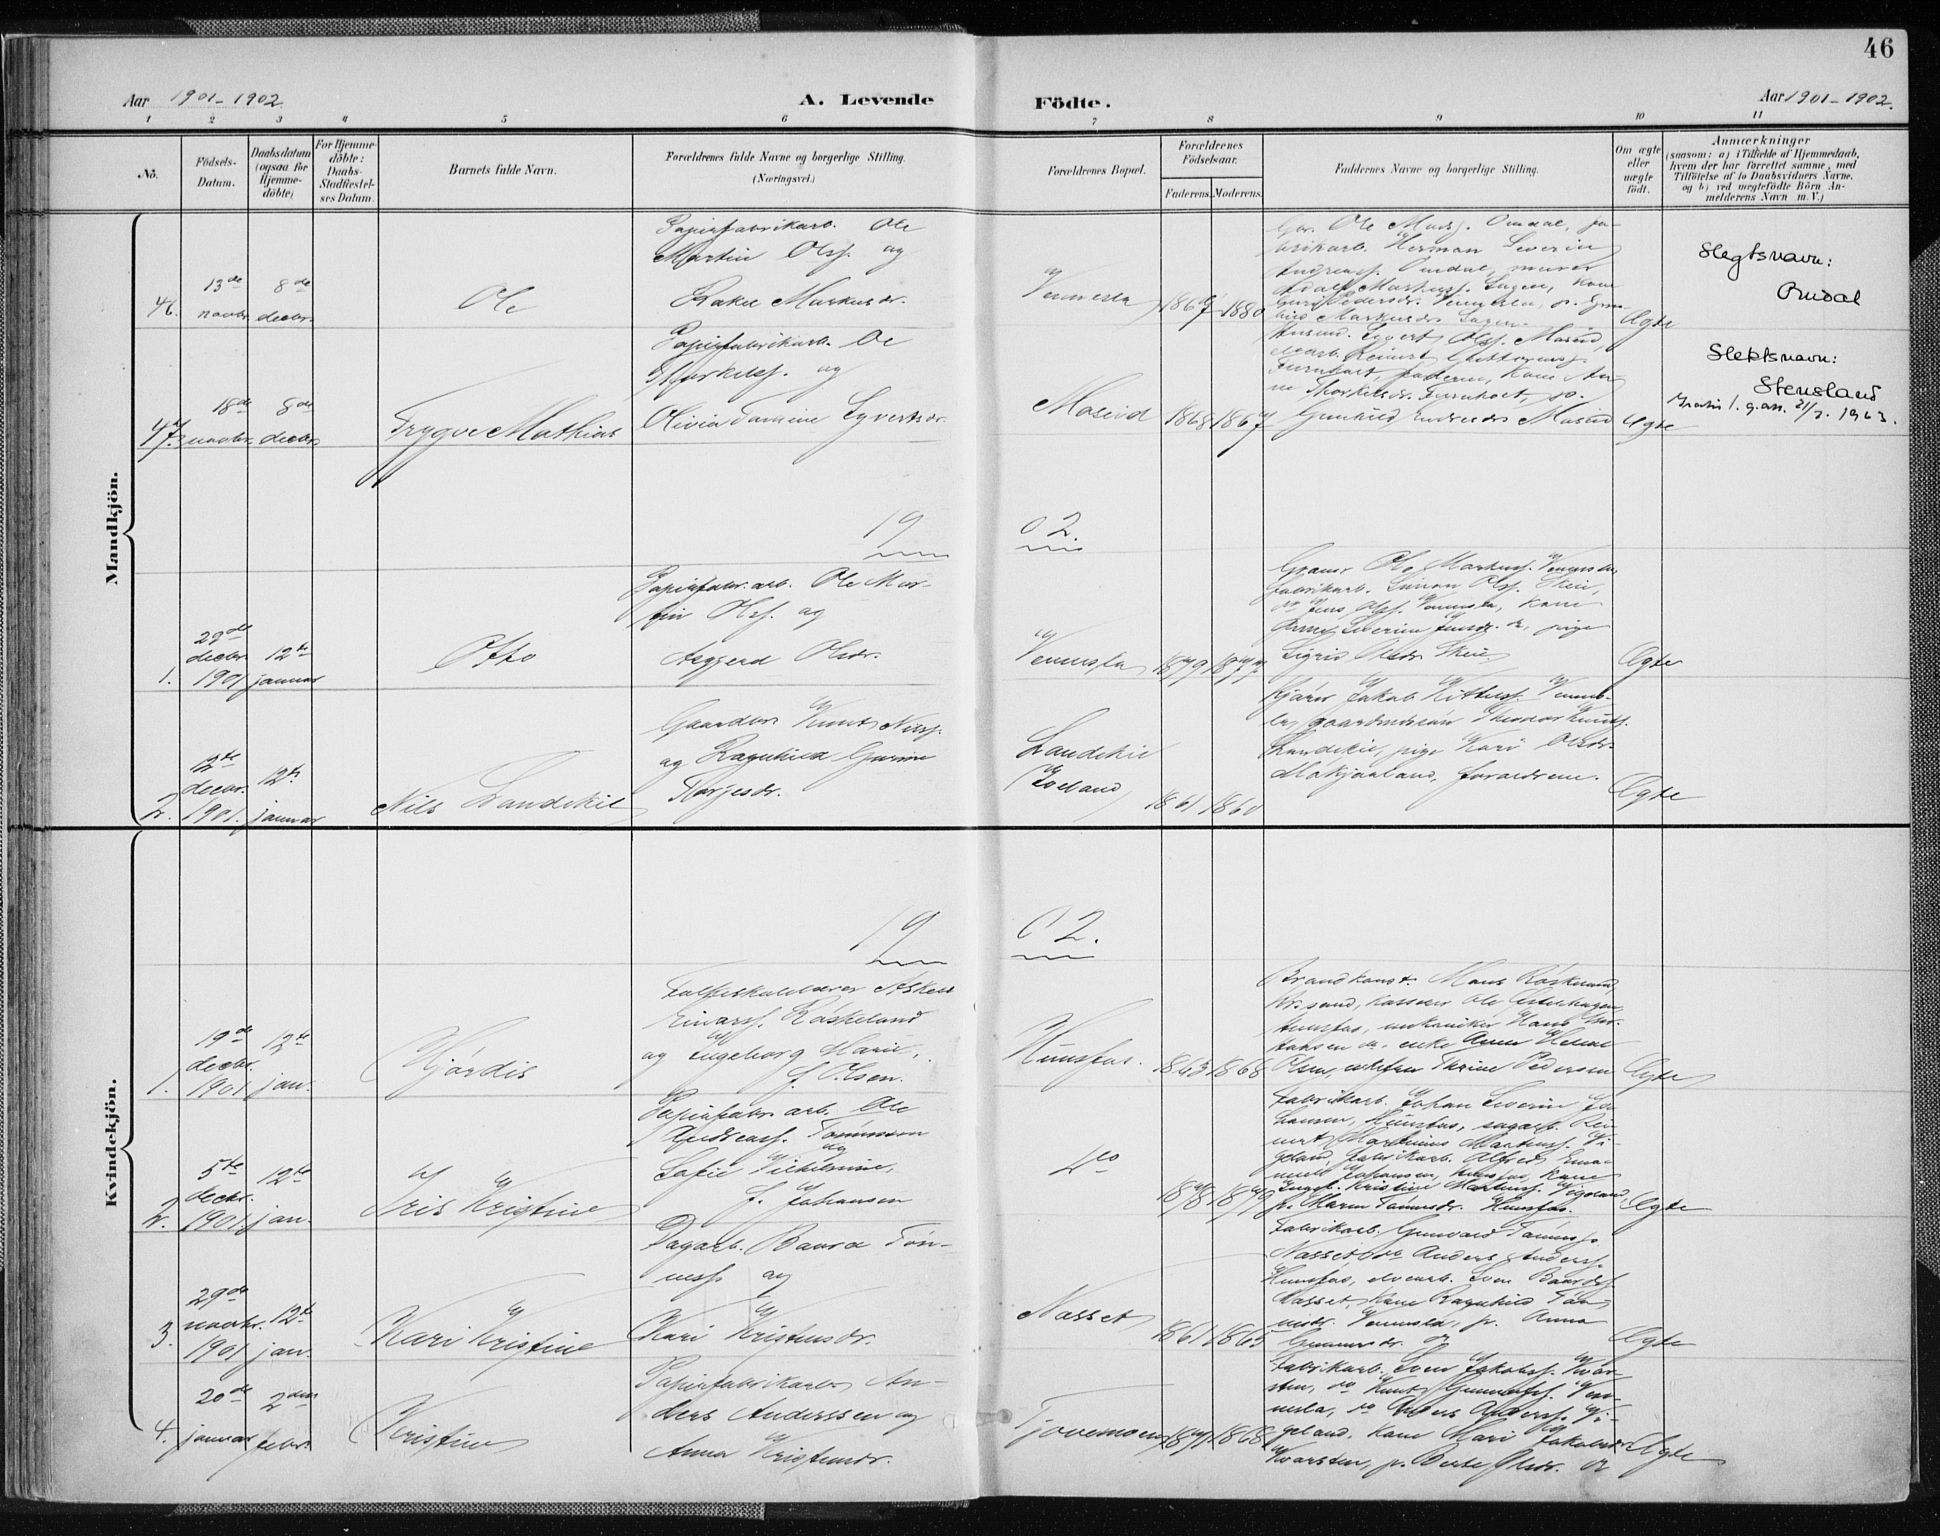 46
Aar 1901-1902.
A. Levende Födte.
Aar 1901-1902.
1 2 3 4 5 6 7 8 9 10 11
No.
Födsels-
Datum.
Daabsdatum
(ogsaa för
Hjemme-
döbte)
For Hjemme-
döbte:
Daabs-
Stadfæstel-
ses Datum.
Barnets fulde Navn.
Forældrenes fulde Navne og borgerlige Stilling.
(Næringsvei.)
Forældrenes Bopæl.
Forældrenes
Födselsaar.
Faderens. Moderens.
Faddernes Navne og borgerlige Stilling.
Om ægte
eller
uægte
födt.
Anmærkninger
(saasom: a) i Tilfælde af Hjemmedaab,
hvem der har forrettet samme, med
Tilföielse af to Daabsvidners Navne,
og b) ved uægtefödte Börn An-
melderens Navn m. V.)
Mandkjön.
46.
13de
novbr.
8de
decbr.
Ole
Papirfabrikarb. Ole
Martin Olsf. og
Rakel Markusdr.
Vennesla
1867 1880
Gbr. Ole Mads. Omdal, fa-
brikarb. Herman Severin
Andreasf. Omdal, murer
Adolf Markusf. kone
Vennesla, p.
Markusdr.
Ægte
Slegtsnavn:
Omdal
47.
18de
novbr.
8de
decbr.
Trygve Mathias
Papirfabrikarb. Ole
Torkelsf. og
Olivia Tomine Syvertsdr.
Moseid
1868 1867
Olsf. Moseid,
faderen, kone
Thorkelsdr.
Gunhild Endresdr. Moseid
Ægte
Slektsnavn:
Stensland
1. g. 21/7. 1963.
1902.
1.
29de
decbr.
1901
12te
januar
Otto
Papirfabr. arb. Ole Mar-
tin Olsf. og
Aasgjerd Olsdr.
Vennesla
1879 1877
Ole Markusf. Vennesla,
fabrikarb. Simon Olsf. Skei,
do Jens Olsf. Vennesla, kone
Severine Jensdr. do, pige
Sigrid Olsdr. Skei
Ægte
2.
12te
decbr.
1901.
12te
januar
Nils Landekil
Gaardbr. Knut Nilsf.
og Ragnhild Gurine
Torjesdr.
Landekil
(Iveland)
1861 1860
Jakob Kittelsf. Vennes-
la, gaardmandsøn Theodor Knutsf.
Landekil, pige Kari Olsdr.
forældrene.
Ægte
Kvindekjön.
1902.
1.
19de
decbr.
1901
12te
jan.
Hjørdis
Folkeskolelærer Askell
Einarsf. Røskeland
og Ingeborg Marie,
f. Olsen.
Hunsfos.
1863 1868
Brandkonst. Mons Røskeland,
Kr.sand, kasserer Ole
Hunsfos, mekaniker Hans
do, enke Anne Helene
Olsen, Thrine Pedersen
Ægte
2.
5te
decbr.
1901.
12te
jan.
Iris Kristine
Papirfabr. arb. Ole
Andreasf. Tønnesen
og
Sofie Vilhelmine,
f. Johansen
do
1878 1879
Fabrikarb. Johan Severin Jo-
hansen, Hunsfos, sagarb.
Martinius Vi-
geland, fabrikarb. Alfred Ema-
nuel Johansen, Hunsfos, kone
Kristine Vigeland,
p. Maren Tønnesdr. Hunsfos.
Ægte
3.
29de
novbr.
1901
12te
jan.
Kari Kristine
Dagarb. Baard Tøn-
nesf. og
Kari Kristensdr.
Nasset
1861 1865
Fabrikarb. Gunvald Tønnesf.
Nasset, do Anders Andersf.
Hunsfos, elvearb. Sven Baardsf.
Nasset, kone Ragnhild Tøn-
nesdr. Vennesla, p. Anna
Gunnersdr. do
Ægte
4.
20de
januar
2den
febr.
Kristine
Papirfabrikarb. An-
ders Anderssen og
Anna Kristensdr.
Tjovemoen
1871 1868
Fabrikarb. Sven Jakobsf. Kvar-
sten, do Knut Gunnersf. Ven-
nesla, do Anders Andersf. Vi-
geland, kone Mari Jakobsdr.
Kvarsten, p. Berte Olsdr. do
Ægte